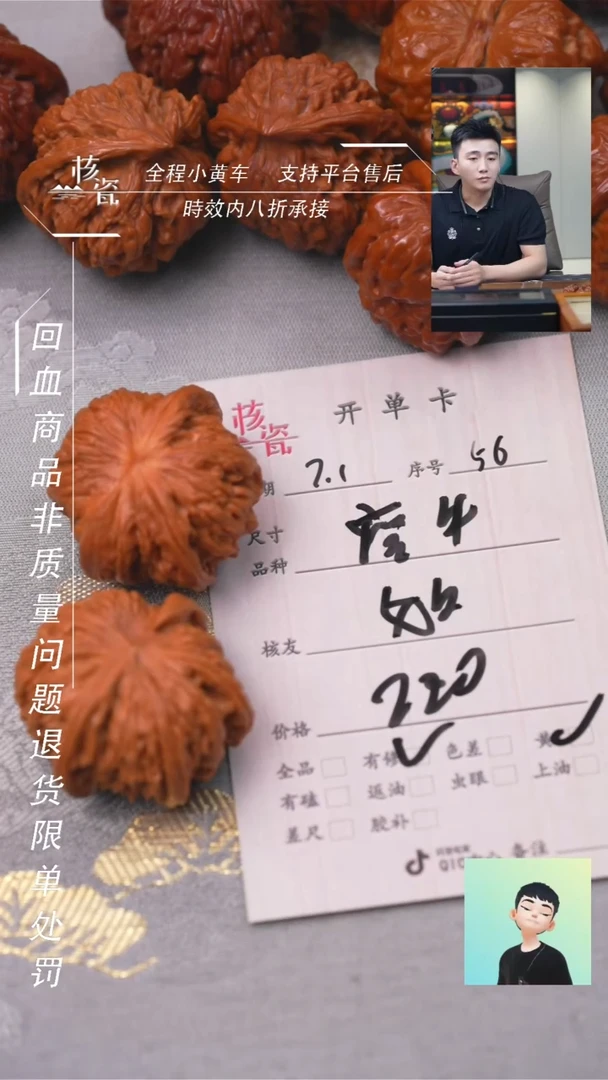 核瓷
全程小黄车 支持平台售后
時效内八折承接
回血商品非质量问题退货限单处罚
核瓷
开单卡
期 7.1 序号 56
尺寸
品种
核友
价格 220
全品 有修 色差 黄
有磕 返油 虫眼 上油
差尺 胶补
备注